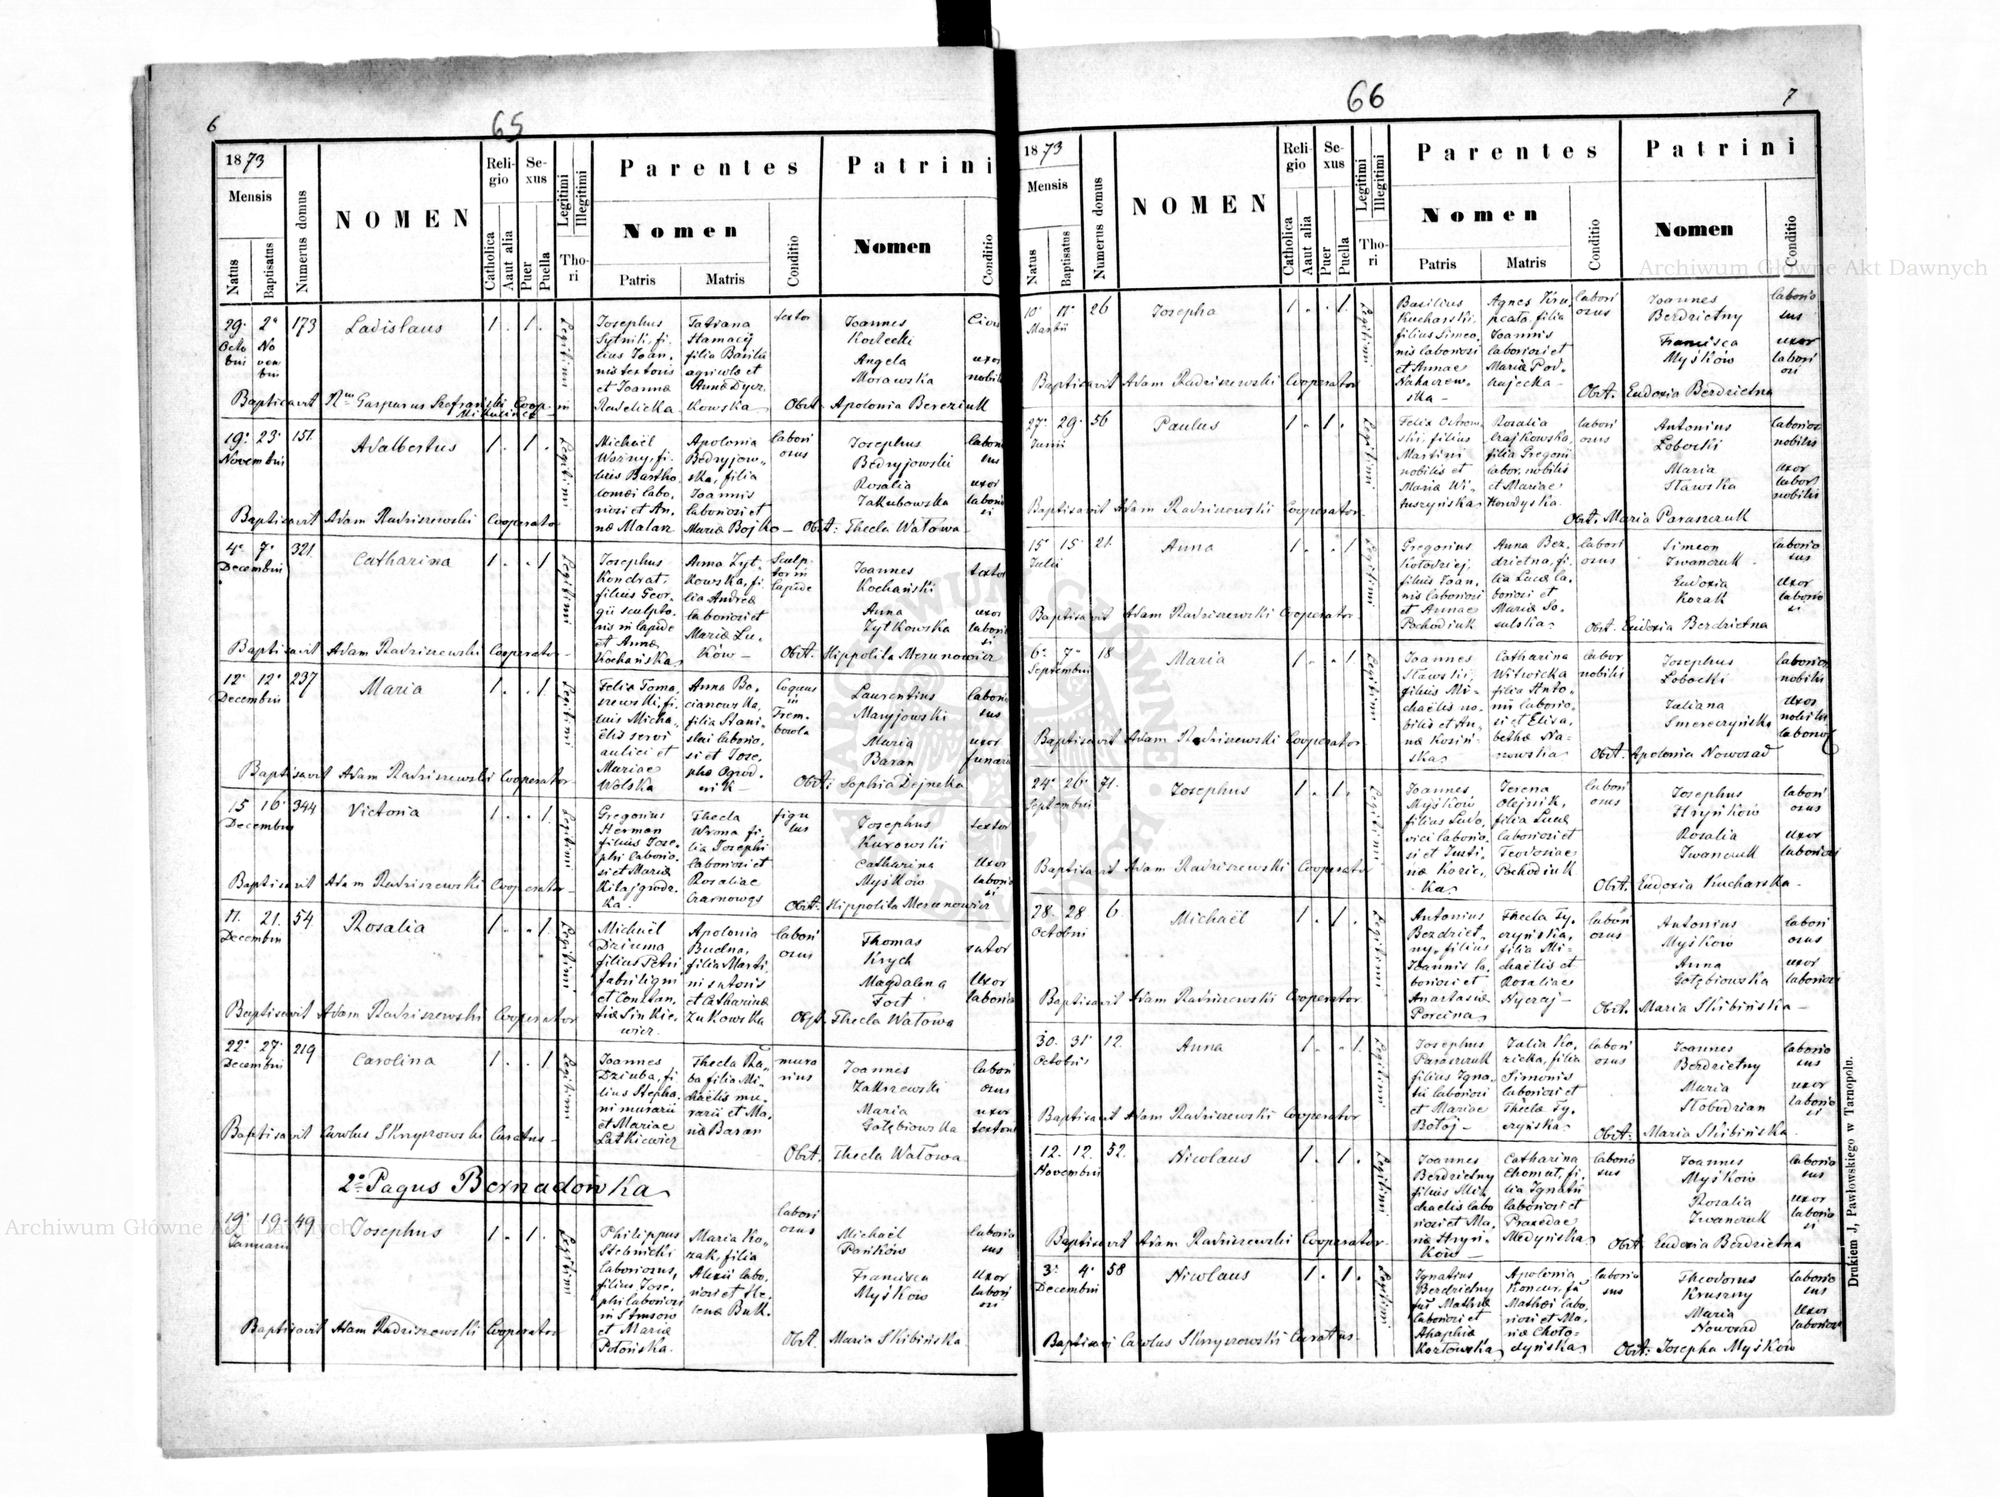 6
65
1873
Mensis
Natus
Baptisatus
Numerus domus
NOMEN
Religio
Catholica
Aaut alia
Sexus
Puer
Puella
Legitimi
Illegitimi
Thori
Parentes
Nomen
Patris
Matris
Conditio
Patrini
Nomen
Conditio
29 2 173 Ladislaus 1 . 1 .
Octobris Novembris
Legitimi
Josephus
filius Joannis textoris
et Joanna
Tatiana
filia Basilii
agricolæ et
textor
Joannes
Kostecki
Angela
Morawska
uxor
Baptisavit Gasparus Coop. in Mikulince Obst. Apolonia Bereziuk
19 23 151 Adalbertus 1 . 1 .
Novembris
Legitimi
Michaël
Woźny, filius Bartholomæi laboriosi et Annæ Malarz
Apolonia
Bedryjowska, filia
Joannis
laboriosi et
Mariæ Bojko
laboriosus
Josephus
Bedryjowski
Rosalia
Jakubowska
uxor
Baptisavit Adam Radziszewski Cooperator Obst: Thecla Watowa
4 7 321 Catharina 1 . . 1
Decembris
Legitimi
Josephus
Kondrat
filius Georgii sculptoris in lapide
et Annæ
Kochańska
Anna Zytkowska, filia Andreæ
laboriosi et
Mariæ Luków
Sculptor in lapide
Joannes
Kochański
Anna
Zytkowska
textor
uxor
Baptisavit Adam Radziszewski Cooperator Obst. Hippolita Merunowicz
12 12 237 Maria 1 . . 1
Decembris
Legitimi
Felix Tomaszewski, filius Michaëlis servi
aulici et
Mariae
Wolska
Anna Bocianowska,
filia Stanislai laboriosi et Josephæ Ogrodnik
Coquus in Trembowla
Laurentius
Maryjowski
Maria
Baran
uxor
Baptisavit Adam Radziszewski Cooperator Obst: Sophia Dejneka
15 16 344 Victoria 1 . . 1
Decembris
Legitimi
Gregorius
Herman
filius Josephi laboriosi et Mariæ
Kitajgrodzka
Thecla
Wrona filia Josephi
laboriosi et
Rosaliae
figulus
Josephus
Kurowski
Catharina
Myśków
textor
uxor
Baptisavit Adam Radziszewski Cooperator Obst. Hippolita Merunowicz
17 21 54 Rosalia 1 . . 1
Decembris
Legitimi
Michaël
Dziuma
filius Petri
fabri ligni
et Constantiæ Sinkiewicz
Apolonia
Budna,
filia Martini sutoris
et Catharinæ
Zukowska
laboriosus
Thomas
Krych
Magdalena
Fort
sutor
uxor
Baptisavit Adam Radziszewski Cooperator Obst. Thecla Watowa
22 27 219 Carolina 1 . . 1
Decembris
Legitimi
Joannes
Dziuba, filius Stephani murarii
et Mariae
Letkiewicz
Thecla Raba filia Michaëlis murarii et Mariæ Baran
murarius
Joannes
Zakrzewski
Maria
Gołębiowska
uxor
Baptisavit Carolus Skryszowski Curatus Obst. Thecla Watowa
2º Pagus Bernadówka
19 19 49 Josephus 1 . 1 .
Januarii
Legitimi
Philippus
Stebnicki
laboriosus,
filius Josephi laboriosi
et Mariæ
Połońska
Maria Kozak, filia
Alexii laboriosi et Helenæ Buk
laboriosus
Michaël
Pańków
Francisca
Myśków
uxor
Baptisavit Adam Radziszewski Cooperator Obst. Maria Skibińska
66
7
1873
Mensis
Natus
Baptisatus
Numerus domus
NOMEN
Religio
Catholica
Aaut alia
Sexus
Puer
Puella
Legitimi
Illegitimi
Thori
Parentes
Nomen
Patris
Matris
Conditio
Patrini
Nomen
Conditio
10 11 26 Josepha 1 . . 1
Martii
Legitimi
Basilius
Kucharski
filius Simeonis laboriosi
et Annae
Agnes
filia
Joannis
laboriosi et
Mariæ
laboriosus
Joannes
Berdzietny
Francisca
Myśków
laboriosus
uxor
laboriosi
Baptisavit Adam Radziszewski Cooperator Obst. Eudoxia Berdzietna
27 29 56 Paulus 1 . 1 .
Junii
Legitimi
Felix
filius
Martini
nobilis et
Mariæ
Rosalia
Czajkowska,
filia Gregorii
labor. nobilis
et Mariae
laboriosus
Antonius
Łobocki
Maria
Stawska
nobilis
uxor
labor.
nobilis
Baptisavit Adam Radziszewski Cooperator
Obst. Maria Paraszczuk
15 15 21 Anna 1 . . 1
Julii
Legitimi
Gregorius
Kołodziej,
filius Joannis laboriosi
et Annae
Pochodiuk
Anna Berdzietna, filia Lucæ laboriosi et
Mariæ
laboriosus
Simeon
Iwanczuk
Eudoxia
Kozak
laboriosus
uxor
laboriosi
Baptisavit Adam Radziszewski Cooperator Obst. Eudoxia Berdzietna
6 7 18 Maria 1 . . 1
Septembris
Legitimi
Joannes
Stawski,
filius Michaëlis nobilis et Annæ Kosińska
Catharina
Witwicka
filia Antonii laboriosi et Elisabethæ
labor. nobilis
Josephus
Łobocki
Juliana
Smereczyńska
nobilis
uxor
nobilis
Baptisavit Adam Radziszewski Cooperator Obst. Apolonia Nowosad
24 26 71 Josephus 1 . 1 .
Septembris
Legitimi
Joannes
Myśków
filius Ludovici laboriosi et Justinæ
Olejnik,
filia Lucæ
laboriosi et
Teodosiae
Pochodiuk
laboriosus
Josephus
Hryńków
Rosalia
Iwanczuk
laboriosus
uxor
laboriosi
Baptisavit Adam Radziszewski Cooperator Obst. Eudoxia Kucharska
28 28 6 Michaël 1 . 1 .
Octobris
Legitimi
Antonius
Berdzietny, filius
Joannis laboriosi et
Anastasiæ
Thecla Tyczyńska,
filia Michaëlis et
Rosaliae
laboriosus
Antonius
Myśków
Anna
Gołębiowska
laboriosus
uxor
laboriosi
Baptisavit Adam Radziszewski Cooperator Obst. Maria Skibińska
30 31 12 Anna 1 . . 1
Octobris
Legitimi
Josephus
Paraszczuk
filius Ignatii laboriosi
et Mariae
Julia
filia
Simonis
laboriosi et
Theclæ Tyczyńska
laboriosus
Joannes
Berdzietny
Maria
Słobodzian
laboriosus
uxor
laboriosi
Baptisavit Adam Radziszewski Cooperator Obst: Maria Skibińska
12 12 52 Nicolaus 1 . 1 .
Novembris
Legitimi
Joannes
Berdzietny
filius Michaelis laboriosi et Mariæ Hryńków
Catharina
Chomut, filia Ignatii
laboriosi et
Praxedae
Medyńska
laboriosus
Joannes
Myśków
Rosalia
Iwanczuk
laboriosus
uxor
laboriosi
Baptisavit Adam Radziszewski Cooperator Obst. Eudoxia Berdzietna
3 4 58 Nicolaus 1 . 1 .
Decembris
Legitimi
Ignatius
Berdzietny
laboriosi et
Kozłowska
Apolonia
Mathæi laboriosi et Mariæ
laboriosus
Theodorus
Kruszny
Maria
Nowosad
laboriosus
uxor
laboriosi
Baptisavi Carolus Skryszowski Curatus Obst: Josepha Myśków
Drukiem J, Pawłowskiego w Tarnopolu.
Archiwum Główne Akt Dawnych
Archiwum Główne Akt Dawnych
ARCHIWUM GŁÓWNE AKT DAWNYCH